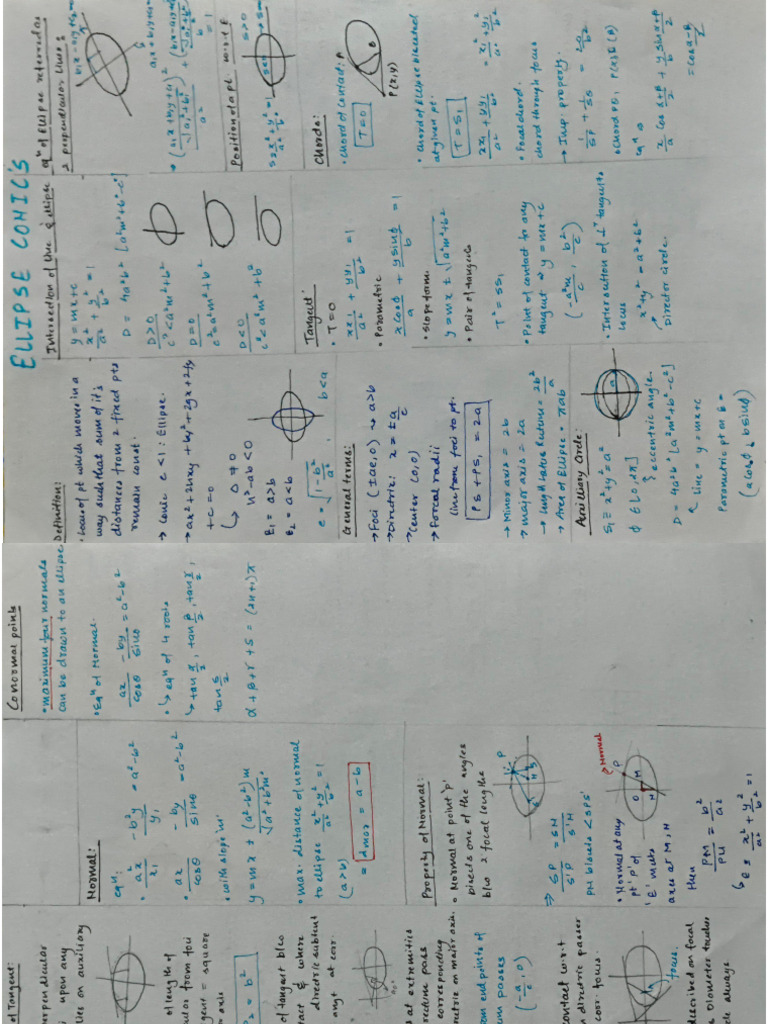 ELLIPSE CONIC'S
Definition:
• Locus of pt which moves in a
way such that sum of it's
distances from 2 fixed pts
remain const.
→ Conic e < 1 : Ellipse.
→ ax² + 2hxy + by² + 2gx + 2fy
+ c = 0
↳ Δ ≠ 0
h² - ab < 0
E₁ = a>b
E₂ = a<b
e = √(1 - b²/a²) , b<a
General terms:
→ Foci (±ae, 0) → a>b
→ Directrix: x = ± a/e
→ Center (0,0)
→ Forcal radii
line from foci to pt.
PS + PS₁ = 2a
→ Minor axis = 2b
→ major axis = 2a
→ Length latus Rectum = 2b²/a
→ Area of Ellipse = πab
Auxilliary Circle:
S₁ ≡ x² + y² = a²
ϕ ∈ [0, 2π]
↳ eccentric angle.
D = 4a²b² [a²m² + b² - c²]
↖ Line = y = mx + c
Parametric pt on E =
(a cosϕ, b sinϕ)
Intersection of line & ellipse
y = mx + c
x²/a² + y²/b² = 1
D = 4a²b² [a²m² + b² - c²]
D>0
c² < a²m² + b²
D=0
c² = a²m² + b²
D<0
c² > a²m² + b²
Tangent:
• T = 0
xx₁/a² + yy₁/b² = 1
• Parametric
x cosϕ/a + y sinϕ/b = 1
• Slope form.
y = mx ± √(a²m² + b²)
• Pair of tangents
T² = SS₁
• Point of contact to any
tangent → y = mx + c
(-a²m/c , b²/c)
• Intersection of ⊥ʳ tangents
locus
x² + y² = a² + b²
Director circle.
eqⁿ of Ellipse referred as
2 perpendicular lines:
a₁x + b₁y +
b₁x - a₁y +
→ (a₁x + b₁y + c₁ / √(a₁² + b₁²))² / a² + (b₁x - a₁y / √(a₁² + b₁²))² / b² = 1
Position of a pt. w.r.t E
S = x²/a² + y²/b² = 1
S>0
Chords:
• Chord of contact:
T = 0
P(x,y)
• Chord of Ellipse bisected
at given pt:
T = S₁
xx₁/a² + yy₁/b² = x₁²/a² + y₁²/b²
• Focal chord:
chord through focus
→ Imp. property.
1/SP + 1/SQ = 2a/b²
eqⁿ →
x/a cos (α+β)/2 + y/b sin (α+β)/2
= cos (α-β)/2
Conormal points
• maximum four normals
can be drawn to an ellipse
• eqⁿ of Normal.
ax/cosθ - by/sinθ = a² - b²
• ↳ eqⁿ of 4 roots
↳ tan α/2, tan β/2, tan γ/2,
tan δ/2
α + β + γ + δ = (2n+1)π
Normal:
eqⁿ:
• a²x/x₁ - b²y/y₁ = a² - b²
• ax/cosθ - by/sinθ = a² - b²
• with slope 'm'
y = mx ± (a² - b²)m / √(a² + b²m²)
• max. distance of normal
to ellipse x²/a² + y²/b² = 1
(a>b)
= dmax = a - b
Property of Normal:
• Normal at point 'P'
bisects one of the angles
b/w 2 focal lengths
⇒ SP/S'P = SN/S'N
PN bisects <SPS'
Normal
• Normal at any
pt 'P' of
'E' meets
axes at M, N
then
PM/PN = b²/a²
↳ E: x²/a² + y²/b² = 1
of Tangent:
erpendicular
upon any
lies on auxiliary
of length of
ular from foci
tangent = square
axis
= b²
of tangent b/w
tact & where
directrix subtend
angt at cor.
at extremities
rectum pass
corresponding
ectrix on major axis.
om endpoints of
um passes
(-a/e, 0)
contact w.r.t
n directrix passes
corr. focus.
focus.
described on focal
s diameter touches
cle always